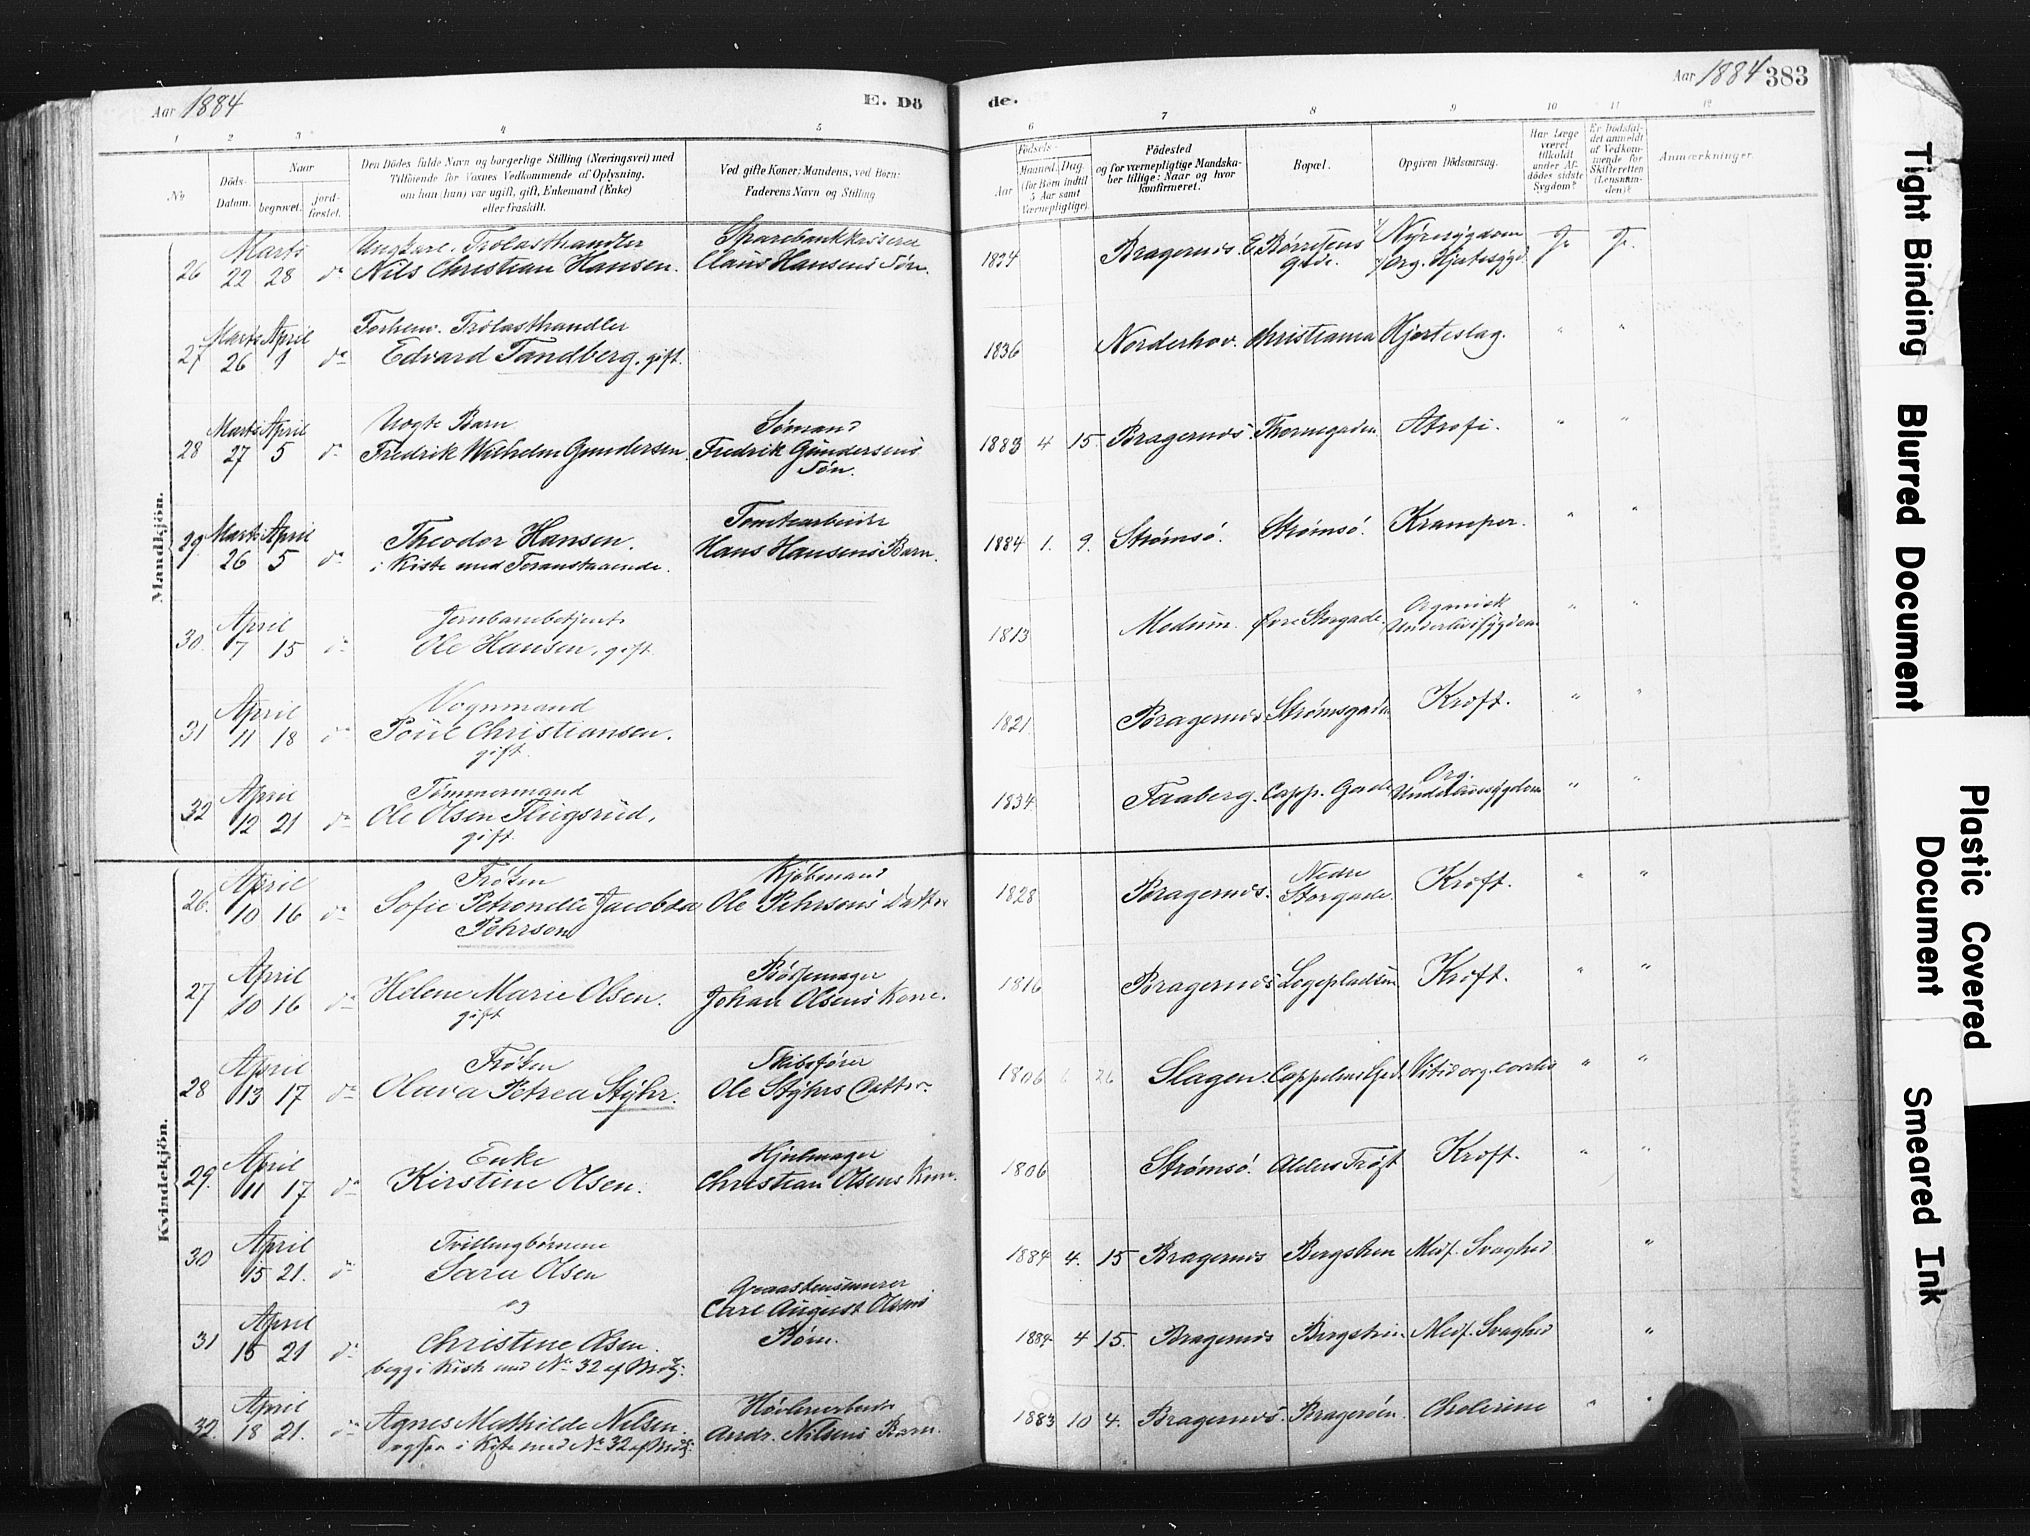 Aar 1884
E. Dö
de.
Aar 1884 383
1 2 3 4 5 6 7 8 9 10 11 12
No
Döds-Datum.
Naar
begravet.
jord-fæstet.
Den Dödes fulde Navn og borgerlige Stilling (Næringsvei) med
Tilföiende for Voxnes Vedkommende af Oplysning,
om han (hun) var ugift, gift, Enkemand (Enke)
eller fraskilt.
Ved gifte Koner: Mandens, ved Börn:
Faderens Navn og Stilling
Födsels-
Aar
Maaned. Dag.
(for Börn indtil
5 Aar samt
Værnepligtige).
Födested
og for værnepligtige Mandska-
ber tillige: Naar og hvor
konfirmeret.
Bopæl.
Opgiven Dödsaarsag.
Har Læge
været
tilkaldt
under Af-
dödes sidste
Sygdom?
Er Dödsfal-
det anmeldt
af Vedkom-
mende for
Skifteretten
(Lensman-
den)?
Anmærkninger
Mandkjön.
Marts Ungkarl. Trælasthandler Sparebankkasserer Nyresygdom
26 22 28 do Nils Christian Hansen. Claus Hansens Søn. Bragernes. E. Børresens Gade. Org. Hjertesygd. Ja Ja
Marts April Forhenv. Trælasthandler
27 26 1 do Edvard Tandberg, gift. 1836 Norderhov. Christiania Hjerteslag. " "
Marts April Uægte Barn Sømand
28 27 5 do Fredrik Wilhelm Gundersen. Fredrik Gundersens Søn. 1883 4 15. Bragernes. Thornegaden Atrofi. " "
Marts April Tomtearbeider
29. 26 5 do Theodor Hansen. Hans Hansens Barn. 1884 1. 9. Strømsö. Strømsö. Kramper. " "
i Kiste med Foranstaaende.
April Jernbanebetjent Organisk
30. 7 15 do Ole Hansen, gift. 1813 Modum. Øvre Storgade. Underlivssygdom " "
April Vognmand
31 11 18 do Poul Christiansen. 1821 Bragernes. Strømsgaden Kræft. " "
gift.
April Tømmermand Org.
32 12 21 do Ole Olsen Flugsrud, 1834 Faaberg. Capp. Gade Underlivssygdom " "
gift.
Kvindekjön.
April Frøken Kjøbmand Nedre
26. 10 16 do Sofie Petronelle Jacobea Ole Pehrsons Datter 1828 Bragernes. Storgade. Kræft. " "
Pehrson
April Bøssemager
27 10 16 do Helene Marie Olsen. Johan Olsens Kone. 1816 Bragernes Løgepladsen Kræft. " "
gift
April Frøken Skibsfører
28 13 17 do Olava Petrea Stÿhr. Ole Stÿhrs Datter. 1806 6 26 Slagen. Vitid org. cordis " "
April Enke Hjulmager
29. 11 17 do Kirstine Olsen. Christian Olsens Kone. 1806 Strømsö. Kræft. " "
April Tvillingbørnene
30 15 21. do Sara Olsen 1884 4. 15 Bragernes Bergstien Medf. Svaghed "
og Graastensmurer
April Carl August Olsens
31 15 21 do Christine Olsen. Børn. 1884 4 15. Bragernes Bergstien Medf. Svaghed "
begge i Kiste med No 32 af Mdkj.
April Høvleriarbeider
32. 18 21. do Agnes Mathilde Nilsen. Andr. Nilsens Barn. 1883 10 4. Bragernes. Bragerøen. Cholerine " "
ogsaa i Kiste med No 32 af Mdkj.
Tight Binding
Blurred Document
Plastic Covered
Document
Smeared Ink